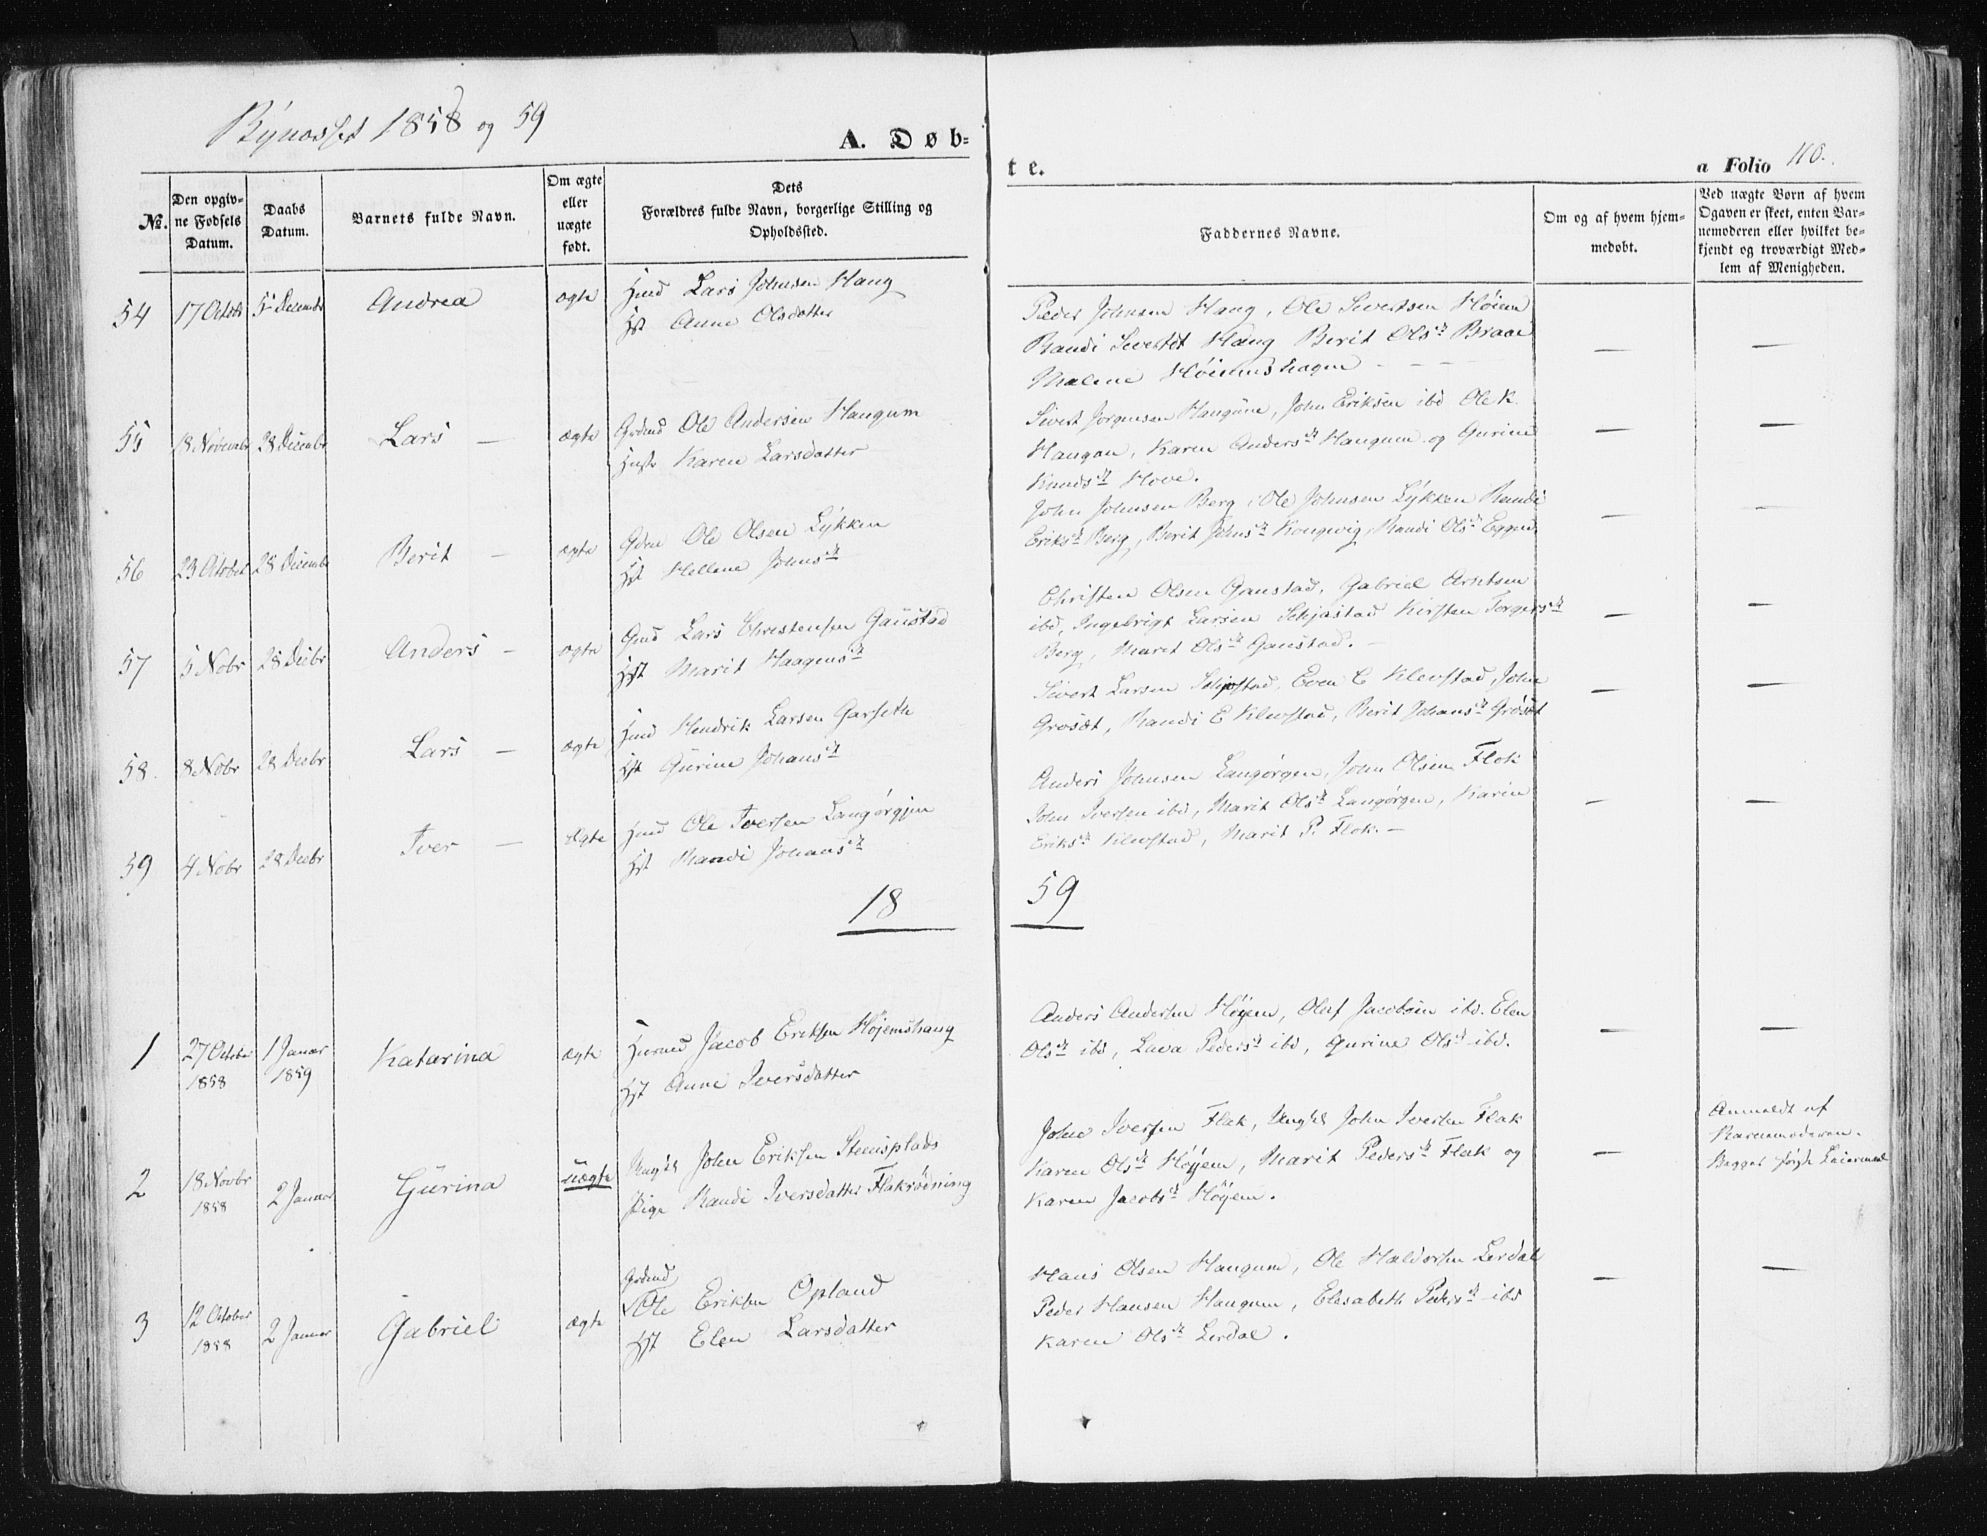 Bynæsset 1858 og 59
A. Døb=
te.
a Folio 110.
No.
Den opgivne Fødsels Datum.
Daabs Datum.
Barnets fulde Navn.
Om ægte eller uægte født.
Dets Forældres fulde Navn, borgerlige Stilling og Opholdssted.
Faddernes Navne.
Om og af hvem hjemmedøbt.
Ved uægte Børn af hvem Ogaven er skeet, enten Barnemoderen eller hvilket bekjendt og troværdigt Medlem af Menigheden.
54 17 Octobr 5 Decembr Andrea ægte Hmd Lars Johnsen Haug
Hst Anne Olsdatter
Peder Johnsen Haug, Ole Sivertsen Höiem
Randi Sivertsd Haug Berit Olsdr Braae
Malene Höiemshagen - - - — —
55 18 Novembr 28 Decembr Lars — ægte Grdmd Ole Andersen Haugum
Hustr Karen Larsdatter
Sivert Jorgensen Haugum, John Eriksen ibd Ole K.
Haugan, Karen Andersdr Haugum og Gurine
Knudsdr Hove. — —
56 23 Octobr 28 Decembr Berit — ægte Gdmd Ole Olsen Lykken
Hst Hellene Johnsdr
John Johnsen Berg, Ole Johnsen Lykken Randi
Eriksdr Berg, Berit Johnsdr Kongsvig, Randi Olsdr Eggen — —
57 5 Nobr 28 Decbr Anders — ægte Gmd Lars Christensen Gaustad
Hst Marit Haagensdr
Christen Olsen Gaustad, Gabriel Arntsen
ibd, Ingebrigt Larsen Schjæstad Kirsten Torgersdr
Berg, Marit Olsdr Gaustad. — — —
58. 8 Nobr 28 Decbr Lars — ægte Hmd Hendrik Larsen Garseth
Hst Gurine Johansdr
Sivert Larsen Schjæstad, Even E Klevstad, John
Grøsæt, Randi E Klevstad, Berit Johansdr Grøsæt — —
59 4 Nobr 28 Decbr Iver — Ægte Hmd Ole Iversen Langørgjen
Hst Randi Johansdr
Anders Johnsen Langørgen, John Olsen Flak
John Iversen ibd, Marit Olsdr Langørgen, Karin
Eriksdr Klevstad, Marit P. Flak. — — —
18 59
1 27 October 1858 1 Januar 1859 Katarina ægte Huusmd Jacob Eriksen Höjemshaug
Hst Anne Iversdatter
Anders Andersen Höyem, Oluf Jacobsen ibd. Elen
Olsdr ibd, Lava Pedersdr ibd, Gurine Olsdr ibd. — —
2 18 Novbr 1858 2 Januar Gurina uægte Ungkl John Eriksen Steensplads
Pige Randi Iversdatter Flakrödning
John Iversen Flak, Ungkl John Iversen Flak
Karen Olsdr Höyem, Marit Pedersdr Flak og
Karen Jacobsdr Höyem. —
Anmeldt af
Barnemoderen.
Begges förste Leiermaal
3 12 October 1858 2 Januar Gabriel Ægte Grdmd
Ole Eriksen Opland
Hst Elen Larsdatter
Hans Olsen Haugum, Ole Haldorsen Lerdal
Peder Hansen Haugum, Elesabeth Pedersdr ibd
Karen Olsdr Lerdal. — —